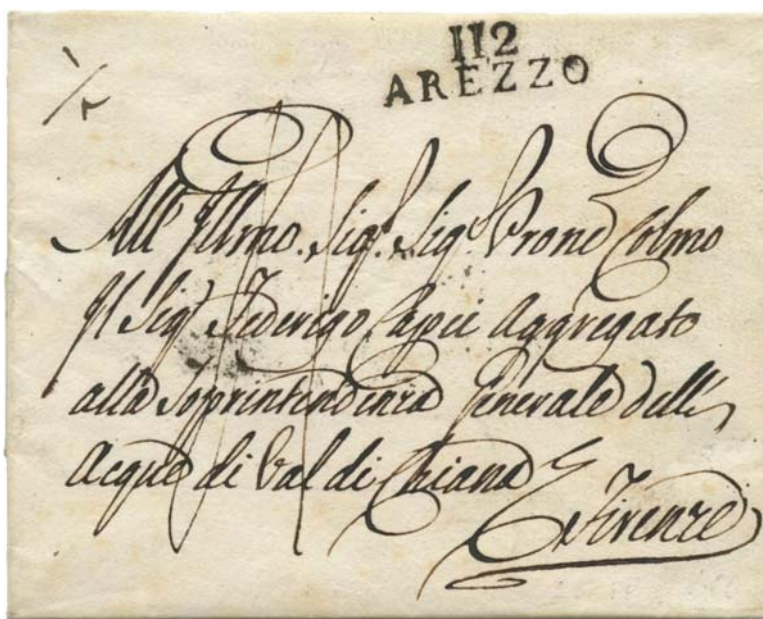 112
AREZZO
All' Illmo. Sigr. Sigr. Prone Colmo
Il Sigr Federigo Capei Aggregato
alla Soprintendenza Generale dell'
Acque di Val di Chiana
Firenze